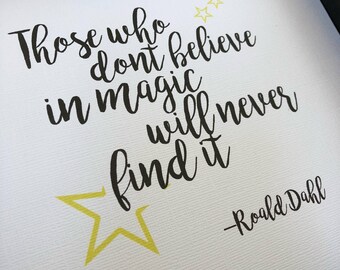 Those who
dont believe
in magic
will never
find it
-Roald Dahl